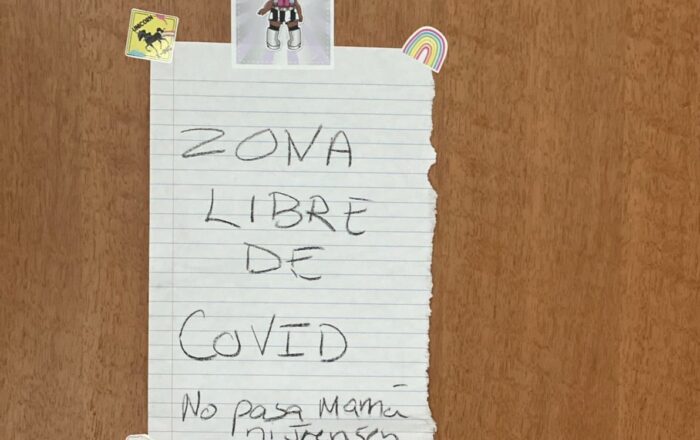 UNICORN
ZONA
LIBRE
DE
COVID
No pasa Mamá
ni